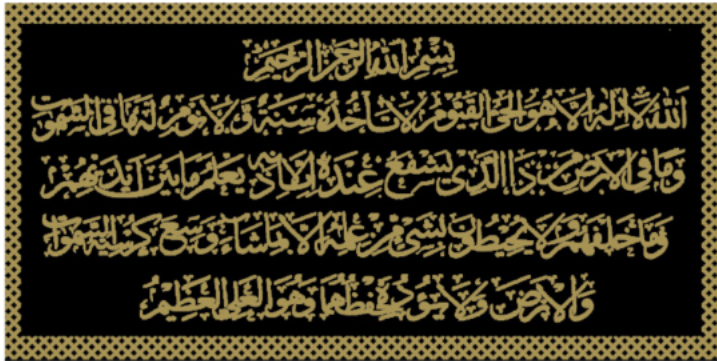 بِسْمِ اللهِ الرَّحْمٰنِ الرَّحِيْمِ
اَللهُ لَا اِلٰهَ اِلَّا هُوَ الْحَىُّ الْقَيُّوْمُ لَا تَأْخُذُهٗ سِنَةٌ وَّلَا نَوْمٌ لَهٗ مَا فِى السَّمٰوٰتِ
وَمَا فِى الْاَرْضِ مَنْ ذَا الَّذِىْ يَشْفَعُ عِنْدَهٗ اِلَّا بِاِذْنِهٖ يَعْلَمُ مَا بَيْنَ اَيْدِيْهِمْ
وَمَا خَلْفَهُمْ وَلَا يُحِيْطُوْنَ بِشَىْءٍ مِّنْ عِلْمِهٖ اِلَّا بِمَا شَاءَ وَسِعَ كُرْسِيُّهُ السَّمٰوٰتِ
وَالْاَرْضَ وَلَا يَئُوْدُهٗ حِفْظُهُمَا وَهُوَ الْعَلِىُّ الْعَظِيْمُ